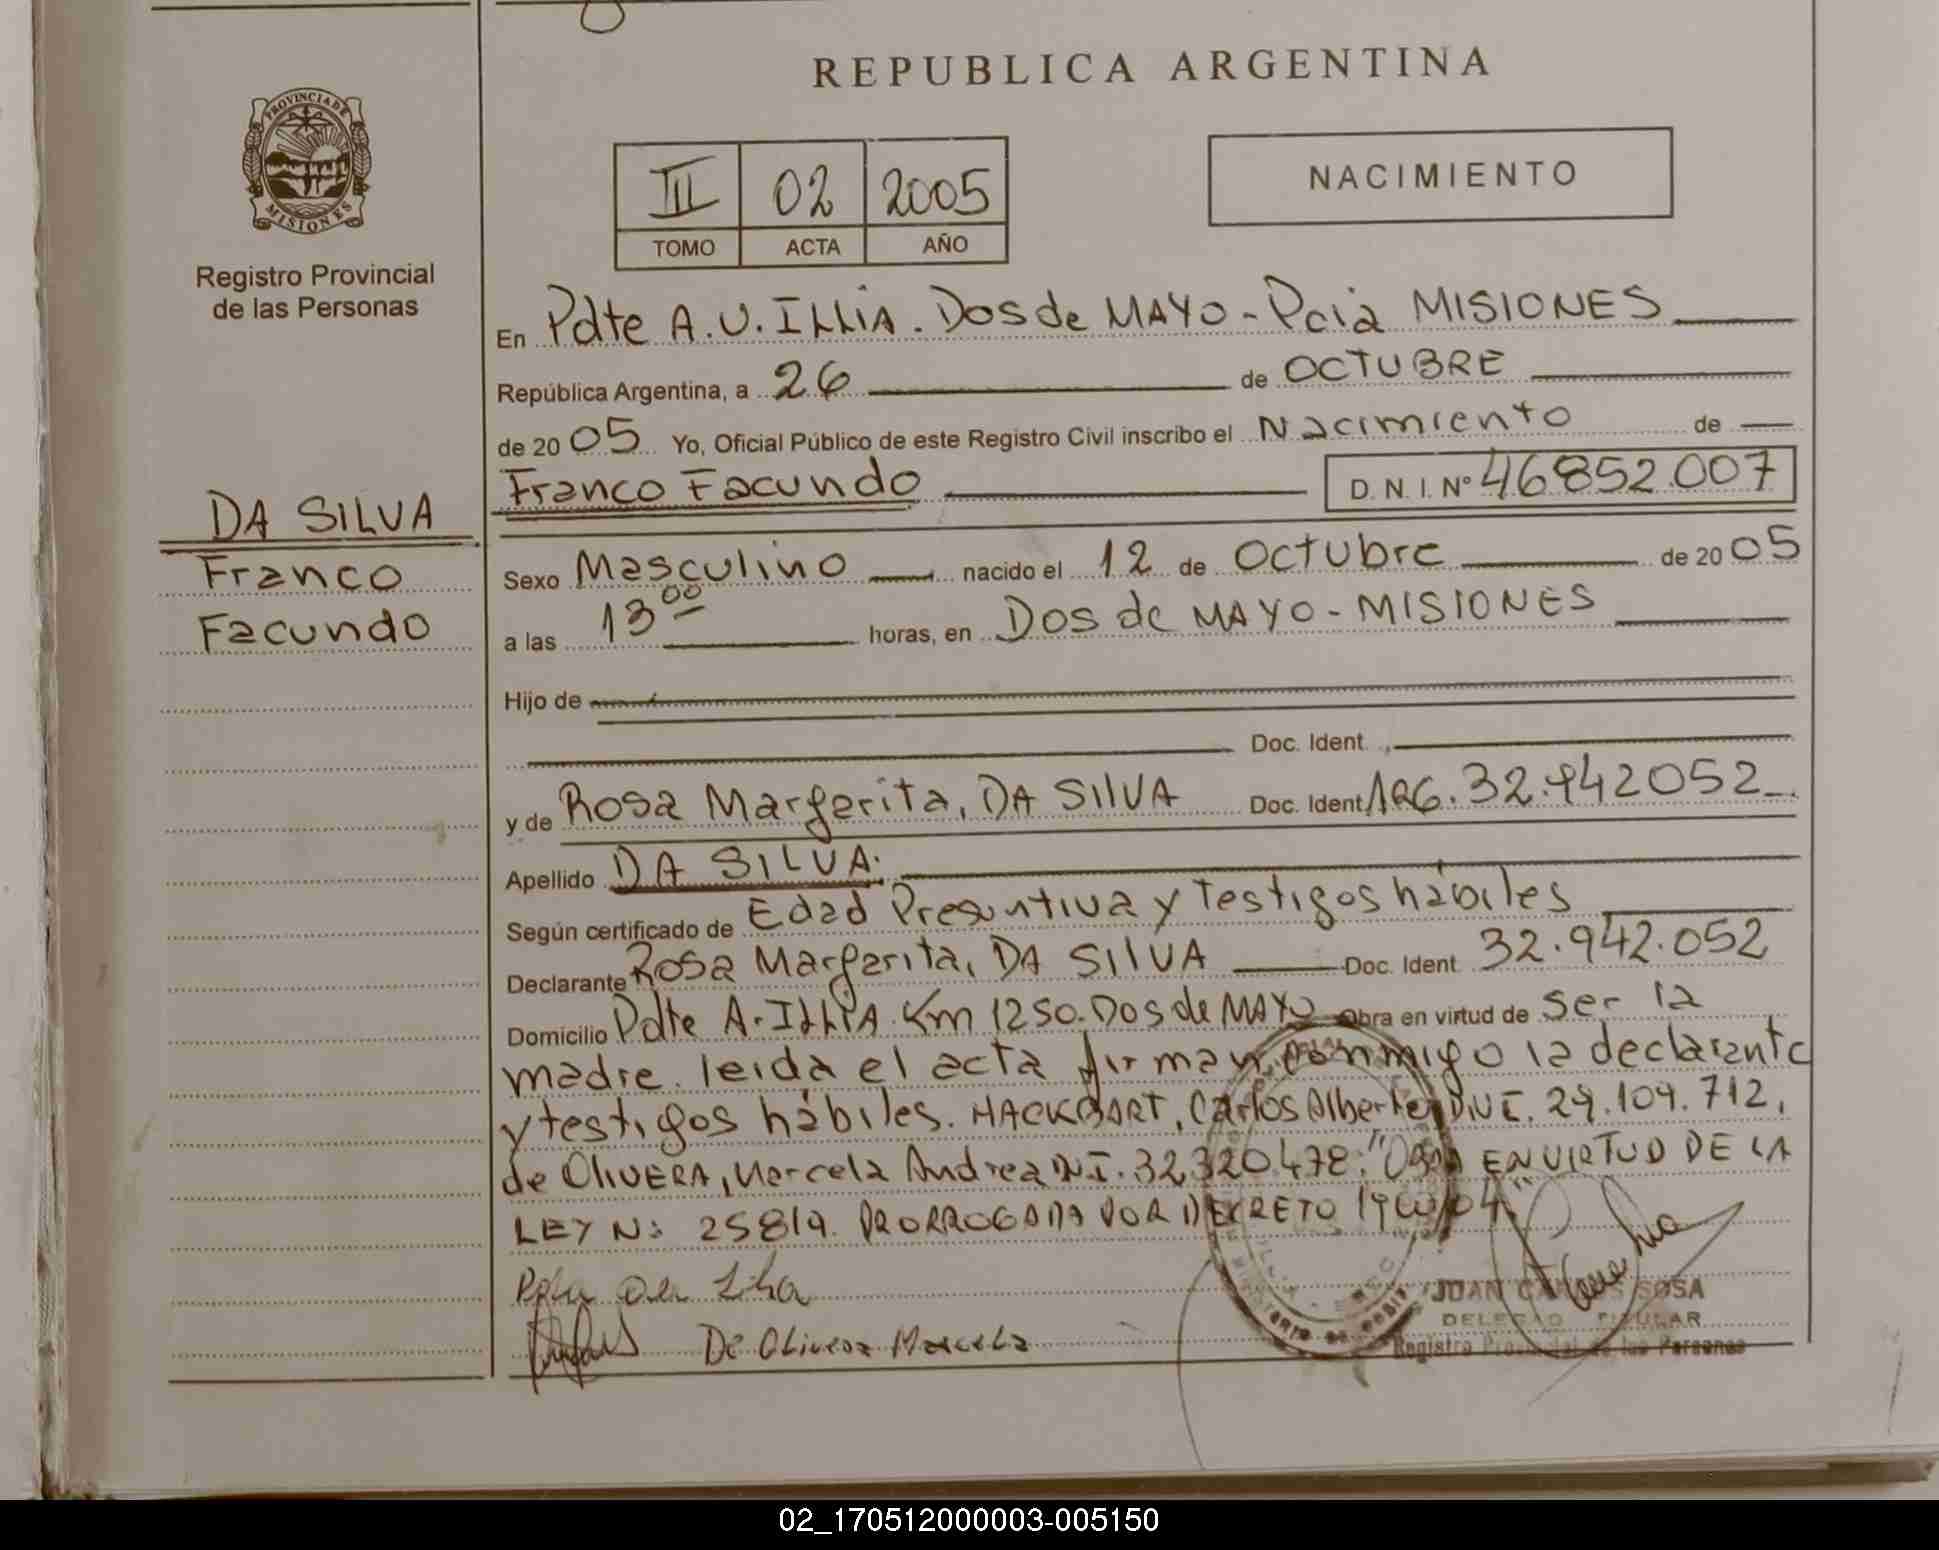 REPUBLICA ARGENTINA
PROVINCIA DE
MISIONES
Registro Provincial
de las Personas
III 02 2005
TOMO ACTA AÑO
NACIMIENTO
En Pdte A.U.ILLIA. Dos de MAYO - Pcia MISIONES
República Argentina, a 26 de OCTUBRE
de 20 05 Yo, Oficial Público de este Registro Civil inscribo el Nacimiento de
Franco Facundo D. N. I. Nº 46852007
DA SILVA
Franco
Facundo
Sexo Masculino nacido el 12 de Octubre de 20 05
a las 13 00 horas, en Dos de MAYO - MISIONES
Hijo de
Doc. Ident.
y de Rosa Margarita, DA SILVA Doc. Ident ARG. 32.942052
Apellido DA SILVA.
Según certificado de Edad Presuntiva y testigos hábiles
Declarante Rosa Margarita, DA SILVA Doc. Ident. 32.942.052
Domicilio Pdte A. ILLIA. Km 1250. Dos de MAYO Obra en virtud de ser la
madre. leida el acta firman conmigo la declarante
y testigos hábiles. HACKBART, Carlos Alberto DNI. 29.109.712,
de OLIVERA, Marcela Andrea DNI. 32320478. "OBRA EN VIRTUD DE LA
LEY N: 25819. PRORROGADA POR DECRETO
De Olivera Marcela
JUAN CARLOS SOSA
DELEGADO TITULAR
Registro Provincial de las Personas
02_170512000003-005150